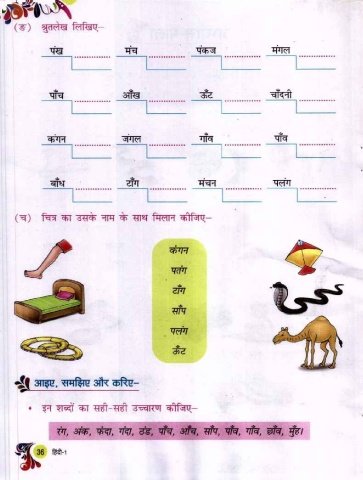 (ङ) श्रुतलेख लिखिए–
पंख मंच पंकज मंगल
पाँच आँख ऊँट चाँदनी
कंगन जंगल गाँव पाँव
बाँध टाँग मंचन पलंग
(च) चित्र का उसके नाम के साथ मिलान कीजिए–
कंगन
पतंग
टाँग
साँप
पलंग
ऊँट
आइए, समझिए और करिए–
• इन शब्दों का सही-सही उच्चारण कीजिए–
रंग, अंक, फंदा, गंदा, ठंड, पाँच, आँच, साँप, पाँव, गाँव, छाँव, मुँह।
36 हिंदी-1